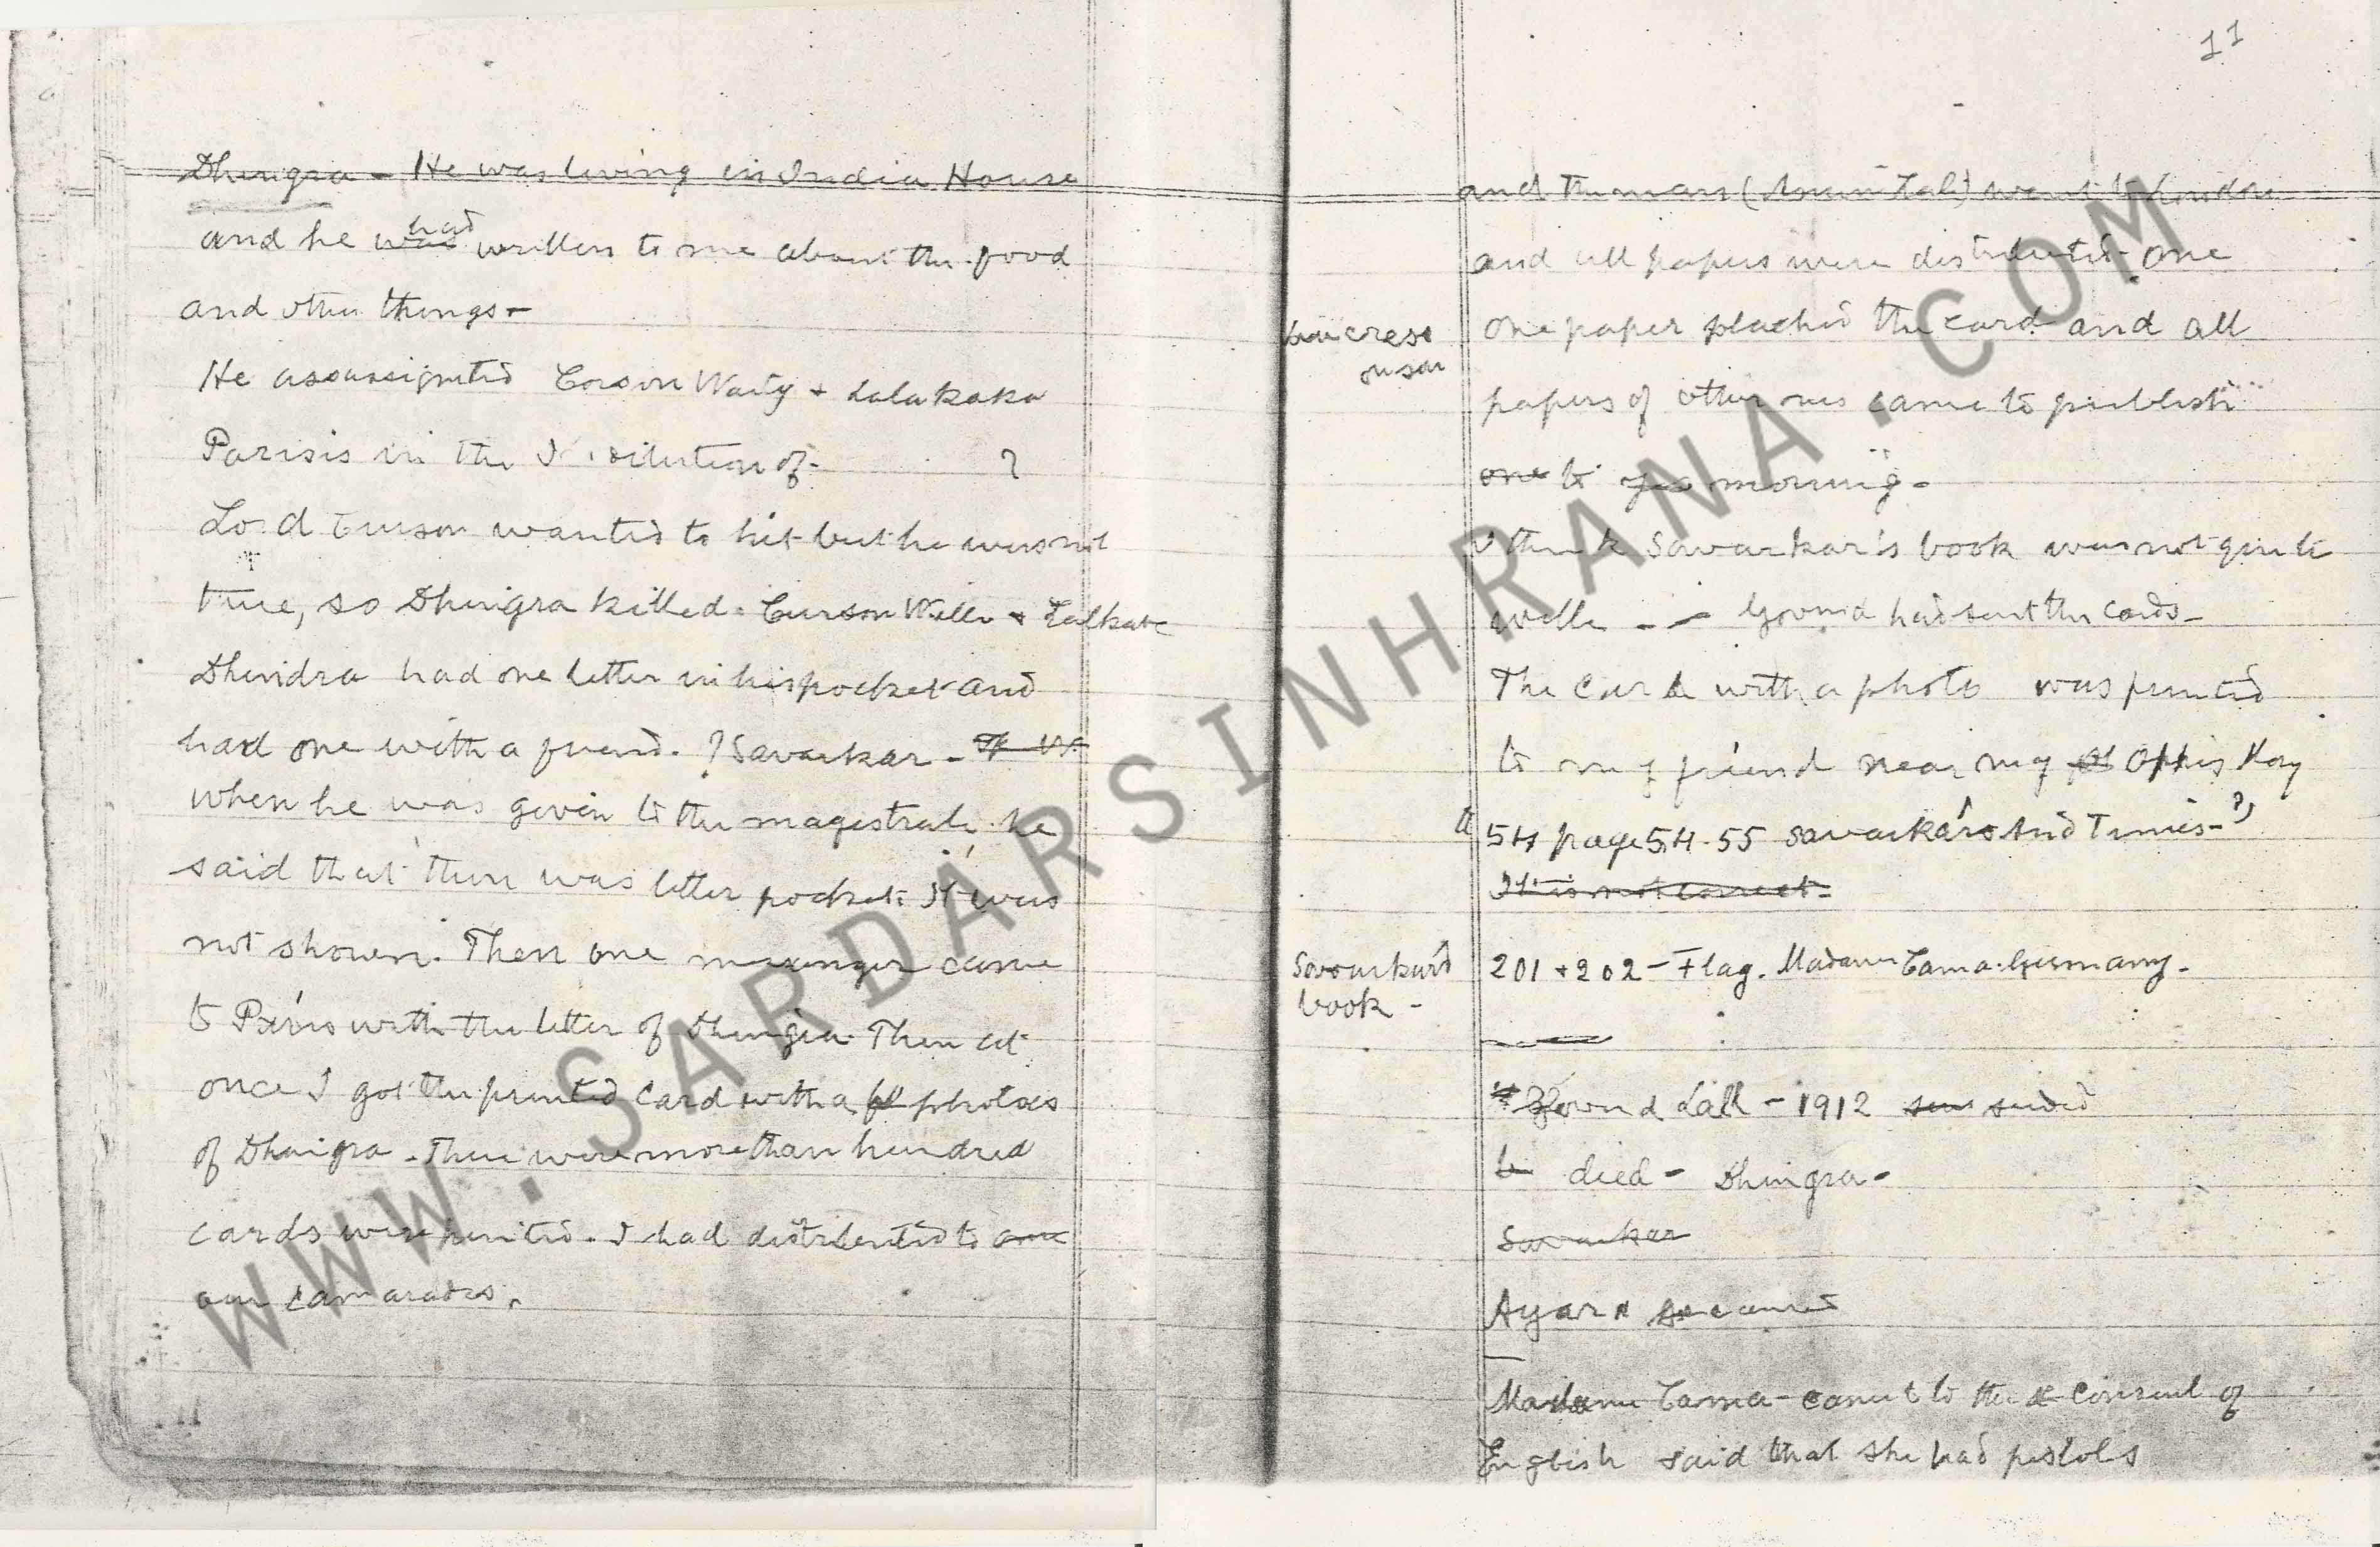 Dhingra - He was living in India House
and he was had written to me about the food
and other things -
He assassignated Corson Waily + Lalakaka
Parisis in the of - ?
Lord Curson wanted to hit but he was not
there, so Dhingra killed. Curson Wille + Lalkaka
Dhindra had one letter in his pocket and
had one with a friend. ? Savarkar -
when he was given to the magistrate he
said that there was letter pocket. It was
not shown. Then one messenger came
to Paris with the letter of Dhingra. Then at
once I got the printed card with a photoes
of Dhingra. There were more than hundred
cards were printed. I had distributed to
our camarades.
11
and the man ( Lal) went to London
and all papers were distributed one
one paper plached the card and all
papers of other ones came to publish
one to morning -
I think Savarkar's book was not quite
well - - Govind had sent the cards -
The card with a photo was printed
to my friend near my
54 page 54-55 Savarkar's And Times - ?
It is not correct -
Savarkar's
book -
201 + 202 - Flag. Madame Cama. Germany -
Govind Lall - 1912
died - Dhingra -
Savarkar
Ayar
Madame Cama - came to the consul of
English said that she had pistols
WWW.SARDARSINHRANA.COM